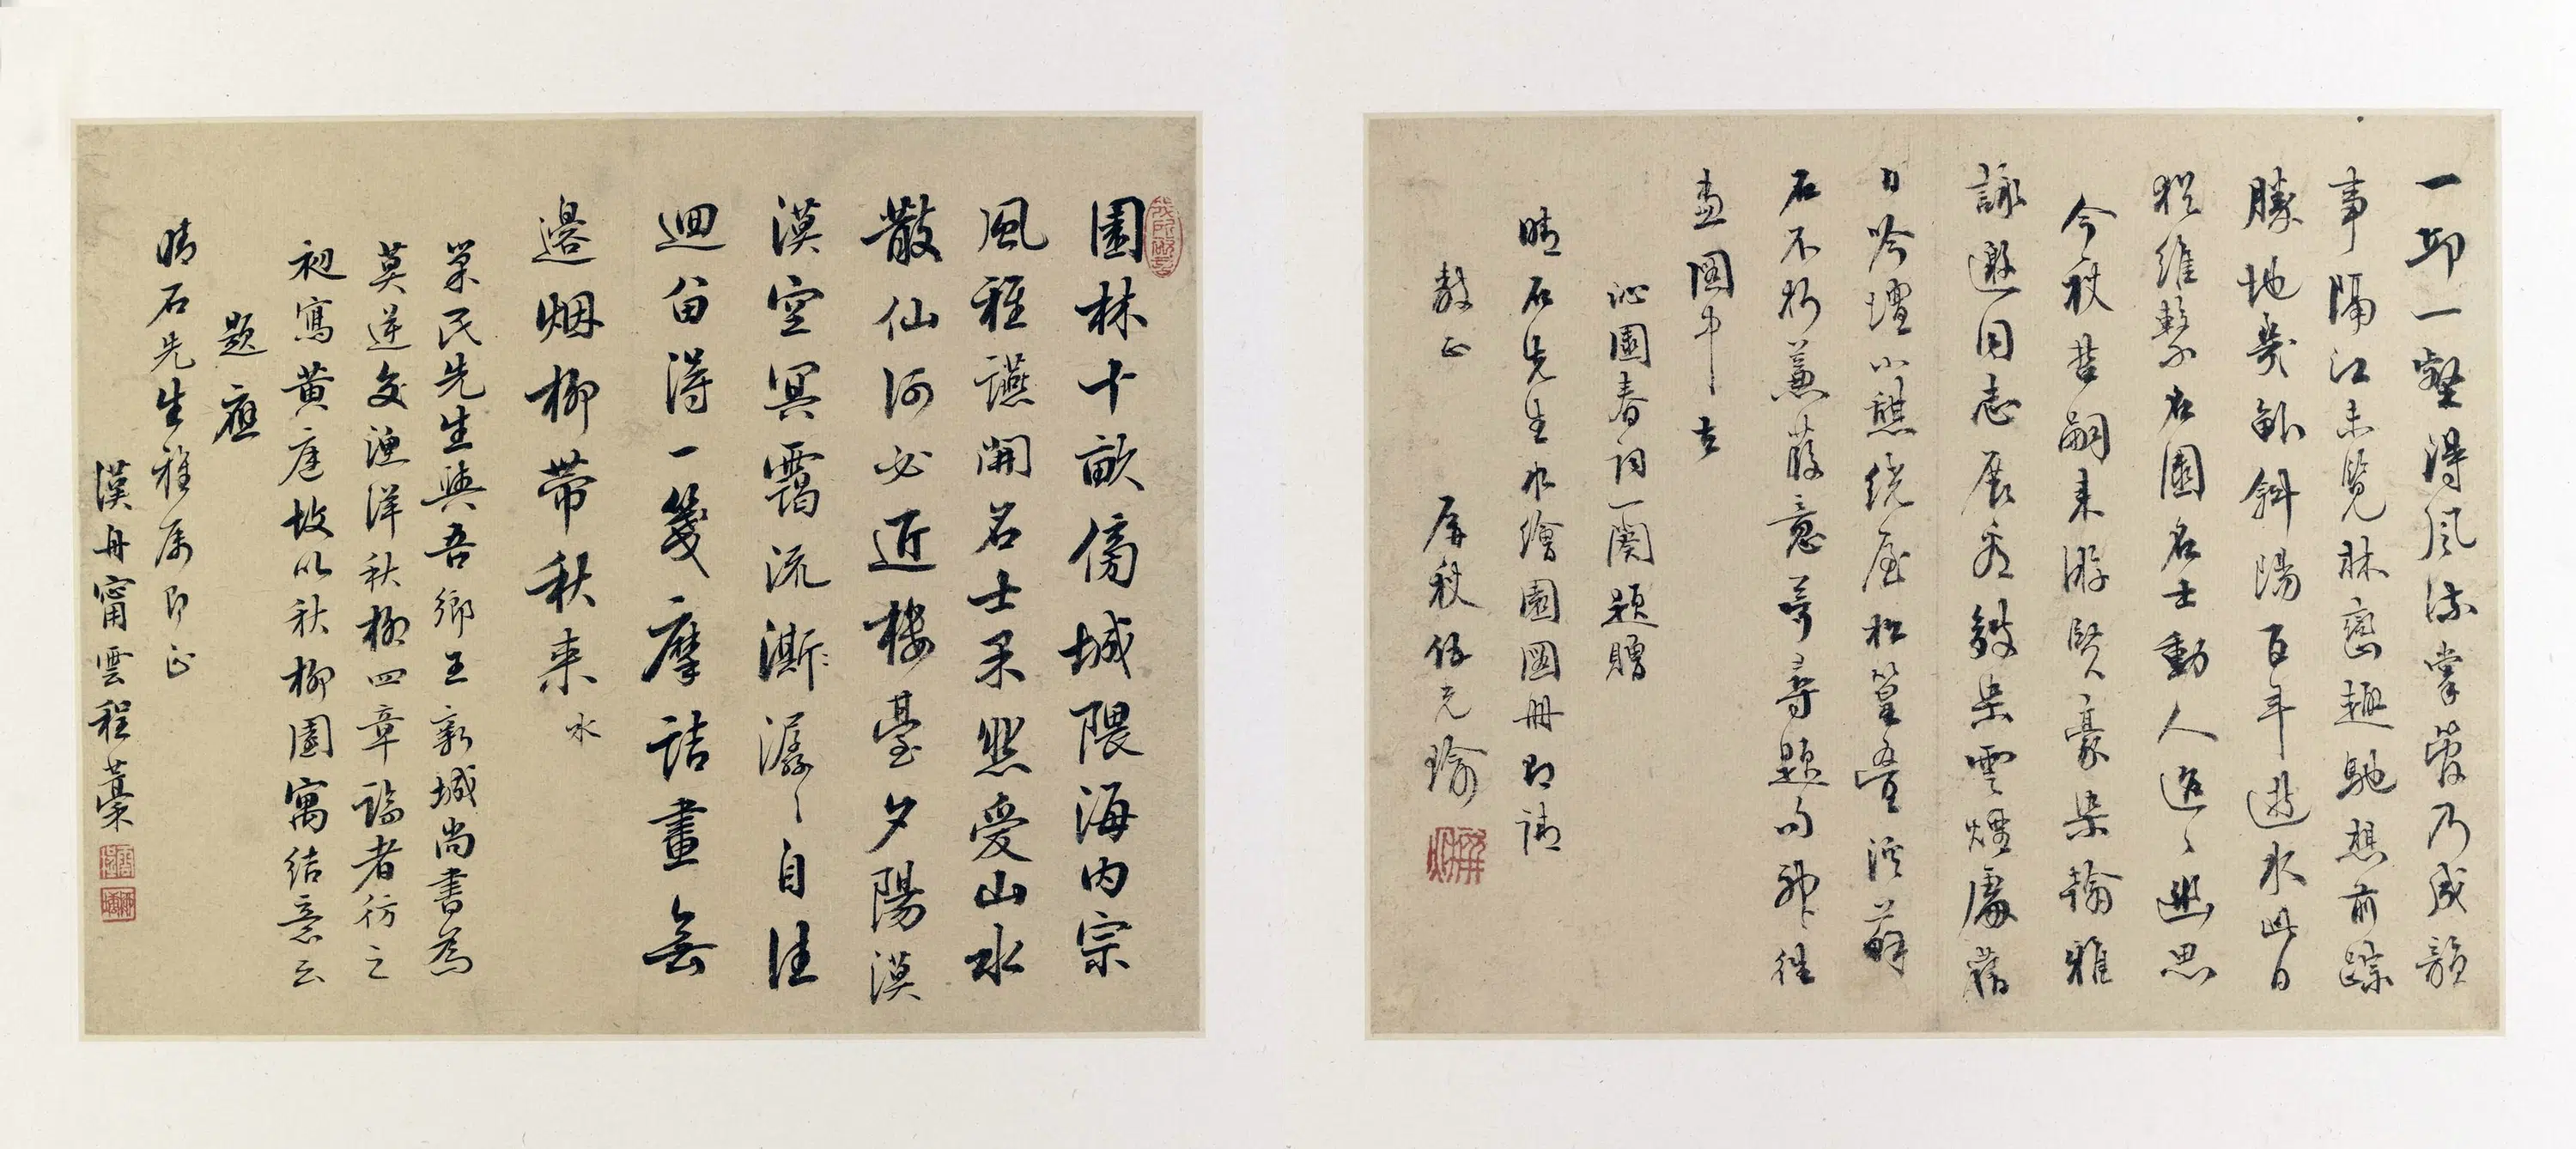 一邱一壑得風流掌管乃成韻
事隔江未覽林巒趣馳想前蹤
勝地幾斜陽百年逝水此日
猶維繫名園名士動人追々幽思
今秋哲嗣來游賢豪染翰雅
詠邀同志展卷鮫染雲煙處舊
日吟壇小憩繞屋松篁壘溪薜
石不朽蒹葭意尋題句神往
畫圖中去
沁園春詞一闋題贈
晴石先生水繪園圖冊即請
教正
屏秋伍元瑜
園林十畝傍城隈海內宗
風雅讌開名士果然愛山水
散仙何必近樓臺夕陽漠
漠空冥靄流澌潺々自洄
迴留得一箋摩詰畫無
邊烟柳帶秋來
水
巢民先生與吾鄉王新城尚書為
莫逆交漁洋秋柳四章論者仿之
初寫黃庭故以秋柳園寓結意云
題應
晴石先生雅屬即正
漢舟甯雲程藁